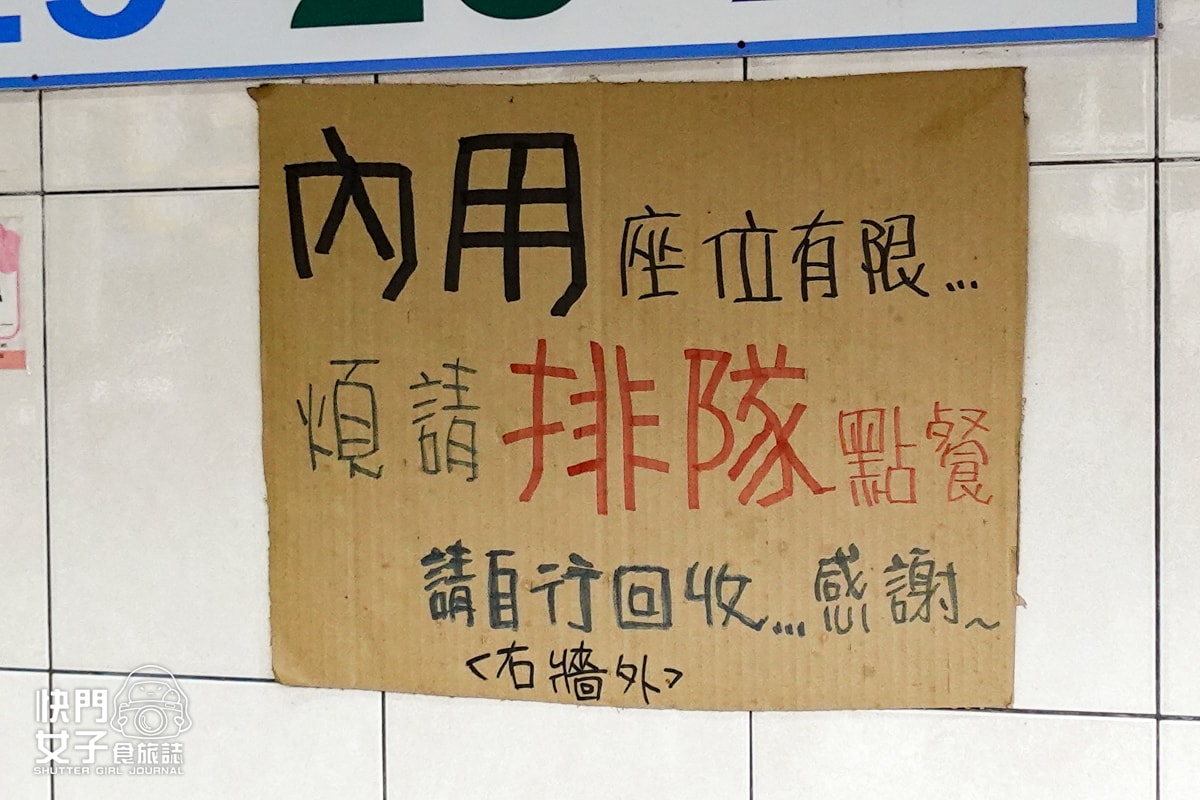 內用座位有限...
煩請排隊點餐
請自行回收...感謝~
<右牆外>
快門
女子食旅誌
SHUTTER GIRL JOURNAL